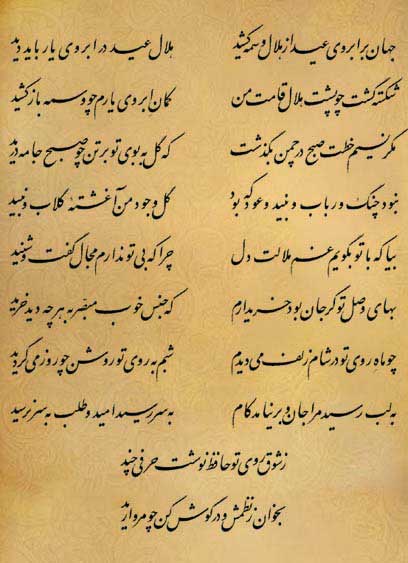 جهان بر ابروی عید از هلال وسمه کشید هلال عید در ابروی یار باید دید
شکسته گشت چو پشت هلال قامت من کمان ابروی یارم چو وسمه باز کشید
مگر نسیم خطت صبح در چمن بگذشت که گل به بوی تو بر تن چو صبح جامه درید
نبود چنگ و رباب و نبید و عود که بود گل وجود من آغشته گلاب و نبید
بیا که با تو بگویم غم ملالت دل چرا که بی تو ندارم مجال گفت و شنید
بهای وصل تو گر جان بود خریدارم که جنس خوب مبصر به هر چه دید خرید
چو ماه روی تو در شام زلف می دیدم شبم به روی تو روشن چو روز می گردید
به لب رسید مرا جان و برنیامد کام به سر رسید امید و طلب به سر نرسید
ز شوق روی تو حافظ نوشت حرفی چند
بخوان ز نظمش و در گوش کن چو مروارید